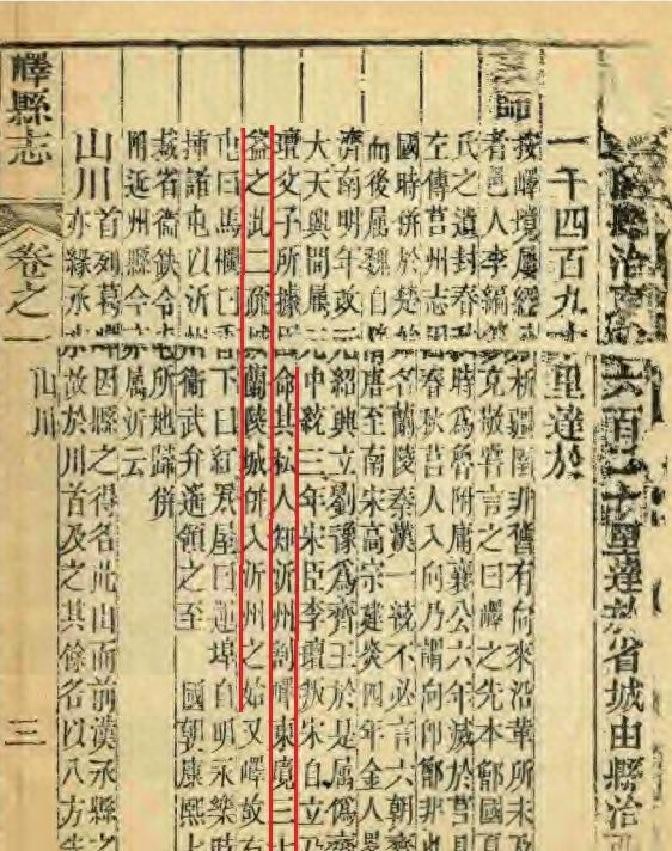 縣治六百二十里達於省城由縣治
一千四百九十里達於
師
按嶧境屬析疆圉非舊有向來沿革所未及
者邑人李克敬嘗言之曰嶧之先本鄫國
氏之遺封春秋時爲魯附庸襄公六年滅於莒見
左傳莒州志因春秋莒人入向乃謂向即鄫非也
國時併於楚始名蘭陵秦漢一統不必言六朝齊
而後屬魏自隋唐至南宋高宗建炎四年金人畧
濟南明年改元紹興立劉豫爲齊王於是屬僞齊
大天興間屬元中統三年宋臣李璮叛宋自立乃
璮父子所據因命其私人知沂州割嶧東境三十
益之此二疏城蘭陵城併入沂州之始又嶧故有
屯曰馬欄曰香下曰紅屋曰埠自明永樂時
揷諸屯以沂州衛武弁遙領之至 國朝康熙七
裁省衛缺令屯所地歸併
附近州縣今亦屬沂云
山川
首列葛嶧因縣之得名此山而前漢承縣之
亦緣承水故於川首及之其餘名以八方先
嶧縣志 卷之一 山川 三